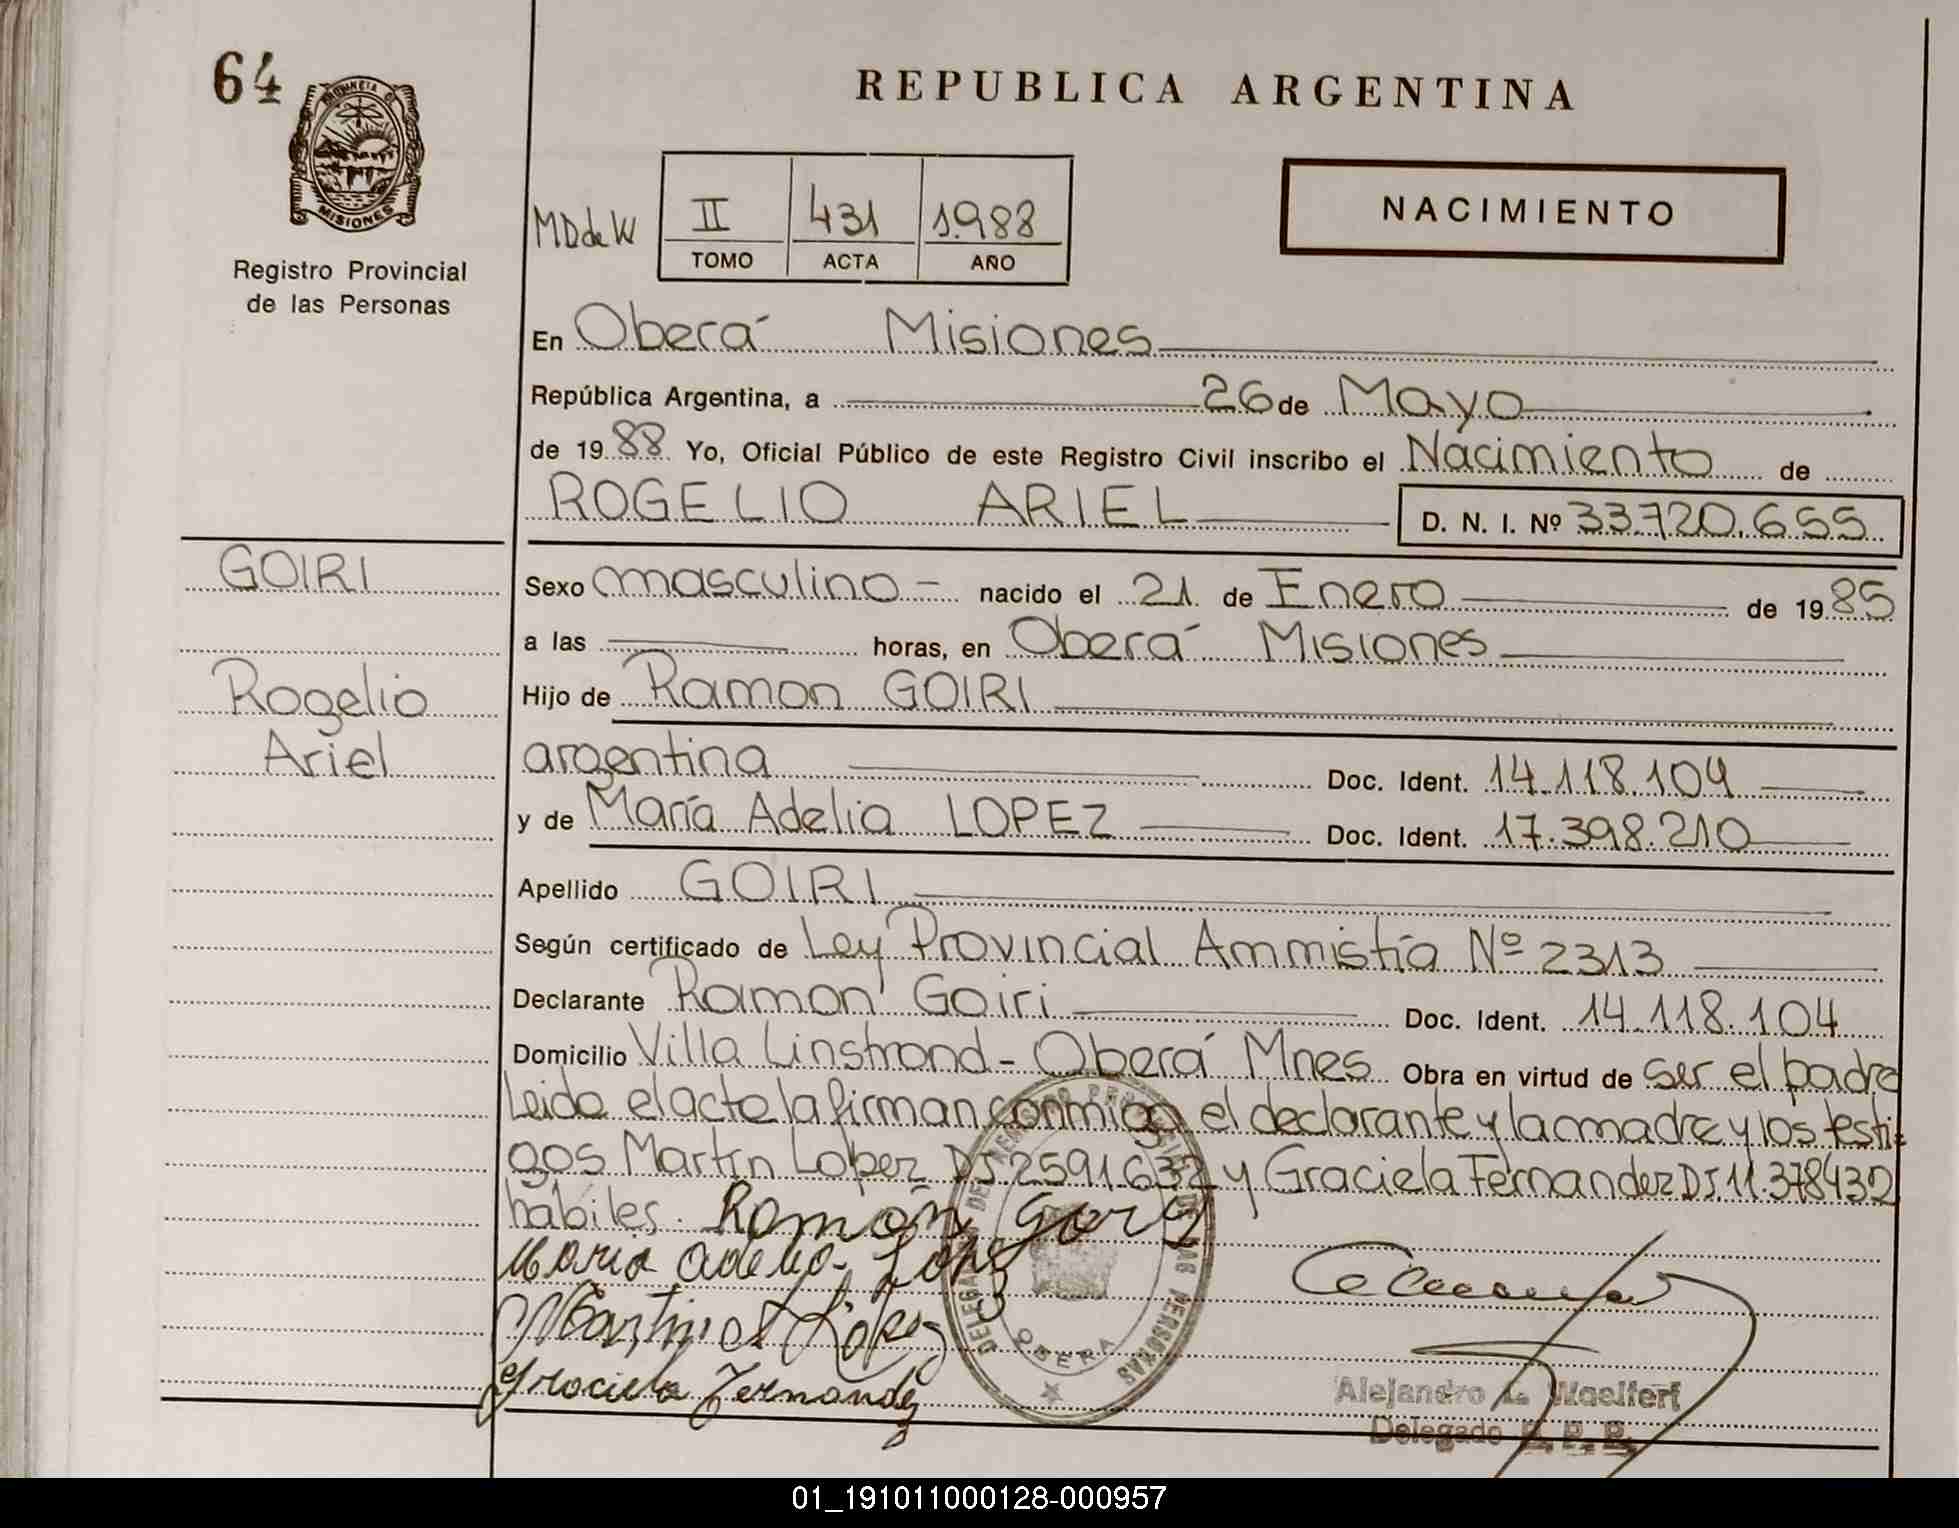 64
REPUBLICA ARGENTINA
PROVINCIA DE
MISIONES
Registro Provincial
de las Personas
MDdeW
II 431 1.988
TOMO ACTA AÑO
NACIMIENTO
En Oberá Misiones
República Argentina, a 26 de Mayo
de 1988 Yo, Oficial Público de este Registro Civil inscribo el Nacimiento de
ROGELIO ARIEL D. N. I. Nº 33.720.655
GOIRI
Sexo masculino - nacido el 21 de Enero de 1985
a las horas, en Oberá Misiones
Rogelio
Hijo de Ramon GOIRI
Ariel
argentina Doc. Ident. 14.118.104
y de María Adelia LOPEZ Doc. Ident. 17.398.210
Apellido GOIRI
Según certificado de Ley Provincial Ammistía Nº 2313
Declarante Ramon Goiri Doc. Ident. 14.118.104
Domicilio Villa Linstrond - Oberá Mnes Obra en virtud de ser el padre
Leida el acta la firman conmigo el declarante y la madre y los testi-
gos Martín Lopez DJ 2591632 y Graciela Fernandez DJ 11.378432
habiles. Ramon
Maria adelia Lopez
Martin Lópes
Graciela Fernandez
OBERA
Alejandro
Delegado R. P. P.
01_191011000128-000957